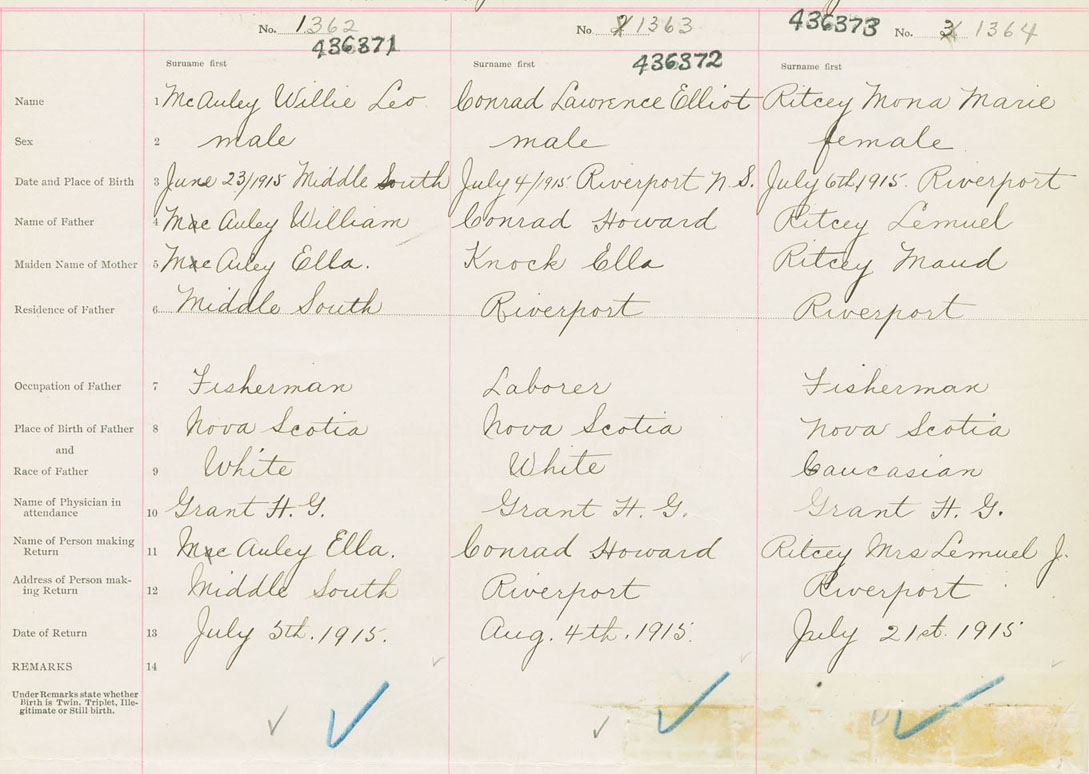 No. 1362 No. 1363 436373 No. 1364
436371 436372
Surname first Surname first Surname first
Name 1 McAuley Willie Leo Conrad Lawrence Elliot Ritcey Mona Marie
Sex 2 male male female
Date and Place of Birth 3 June 23/1915 Middle South July 4/1915 Riverport N.S. July 6th/1915. Riverport
Name of Father 4 McAuley William Conrad Howard Ritcey Lemuel
Maiden Name of Mother 5 McAuley Ella. Knock Ella Ritcey Maud
Residence of Father 6 Middle South Riverport Riverport
Occupation of Father 7 Fisherman Laborer Fisherman
Place of Birth of Father 8 Nova Scotia Nova Scotia Nova Scotia
and
Race of Father 9 White White Caucasian
Name of Physician in
attendance 10 Grant H. G. Grant H. G. Grant H. G.
Name of Person making
Return 11 McAuley Ella. Conrad Howard Ritcey Mrs Lemuel J.
Address of Person mak-
ing Return 12 Middle South Riverport Riverport
Date of Return 13 July 5th. 1915. Aug. 4th. 1915. July 21st. 1915
REMARKS 14
Under Remarks state whether
Birth is Twin, Triplet, Ille-
gitimate or Still birth.